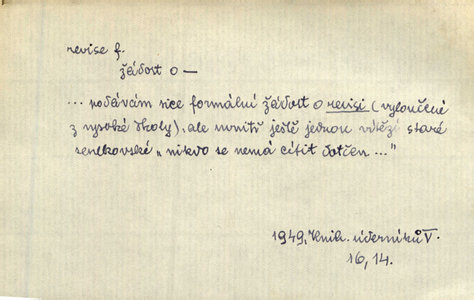 revise f.
žádost o —
... podávám sice formální žádost o revisi (vyloučené
z vysoké školy), ale uvnitř ještě jednou vítězí staré
"nikdo se nemá cítit dotčen ..."
1949, Knih. úderníků V.
16, 14.